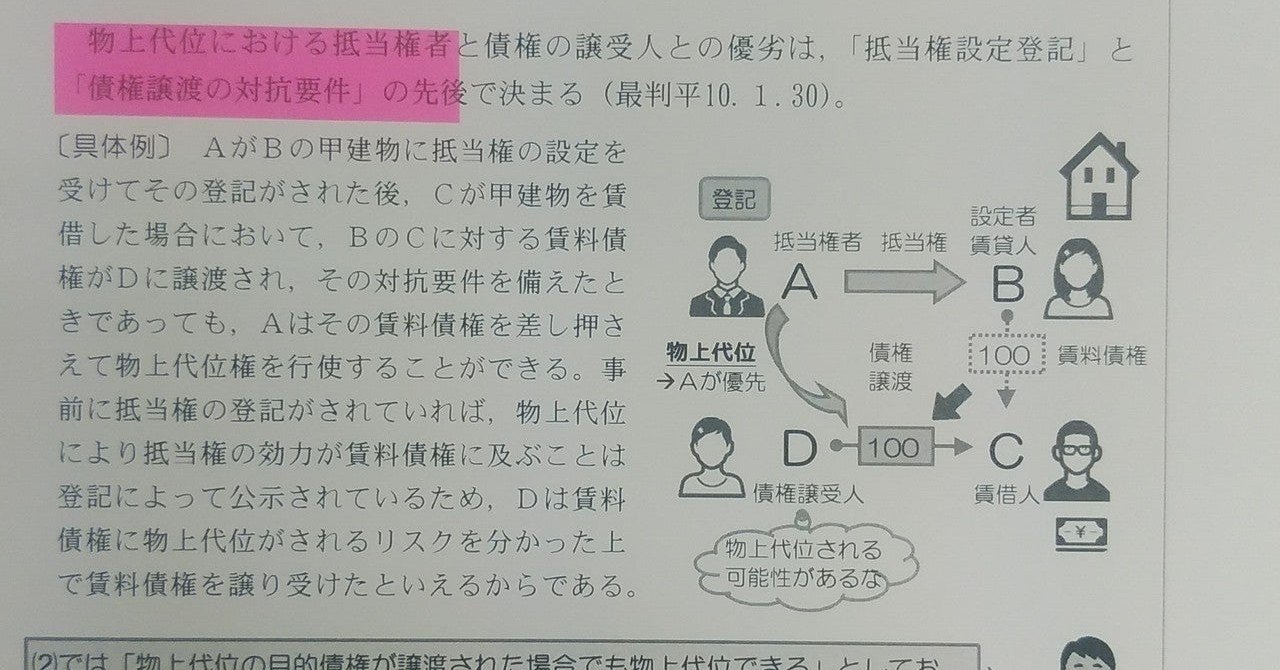 物上代位における抵当権者と債権の譲受人との優劣は，「抵当権設定登記」と
「債権譲渡の対抗要件」の先後で決まる（最判平10．1．30）。
〔具体例〕 ＡがＢの甲建物に抵当権の設定を
受けてその登記がされた後，Ｃが甲建物を賃
借した場合において，ＢのＣに対する賃料債
権がＤに譲渡され，その対抗要件を備えたと
きであっても，Ａはその賃料債権を差し押さ
えて物上代位権を行使することができる。事
前に抵当権の登記がされていれば，物上代位
により抵当権の効力が賃料債権に及ぶことは
登記によって公示されているため，Ｄは賃料
債権に物上代位がされるリスクを分かった上
で賃料債権を譲り受けたといえるからである。
登記
設定者
抵当権者 抵当権 賃貸人
A B
物上代位
→Ａが優先
債権
譲渡
100 賃料債権
D 100 C
債権譲受人 賃借人
¥
物上代位される
可能性があるな
⑵では「物上代位の目的債権が譲渡された場合でも物上代位できる」としてお